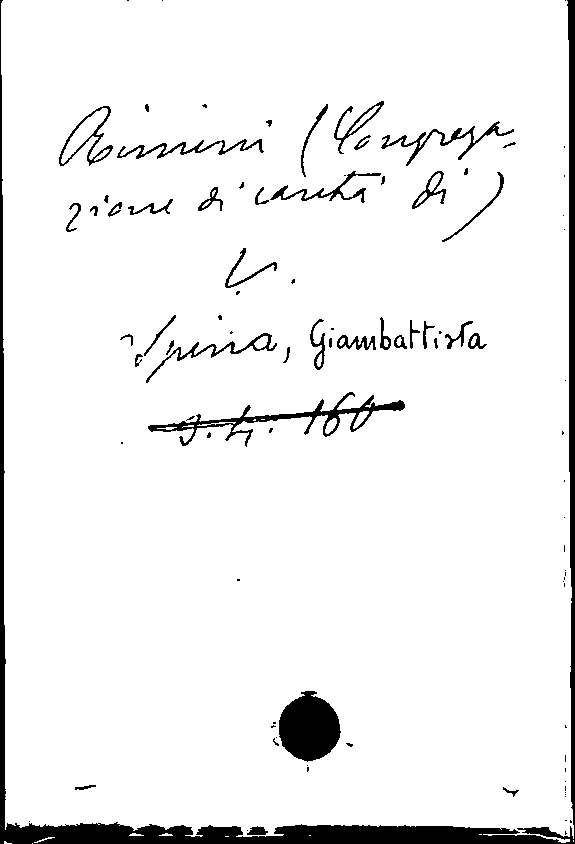 Rimini (Congrega-
zione di carità di)
V.
Spina, Giambattista
3.4.160